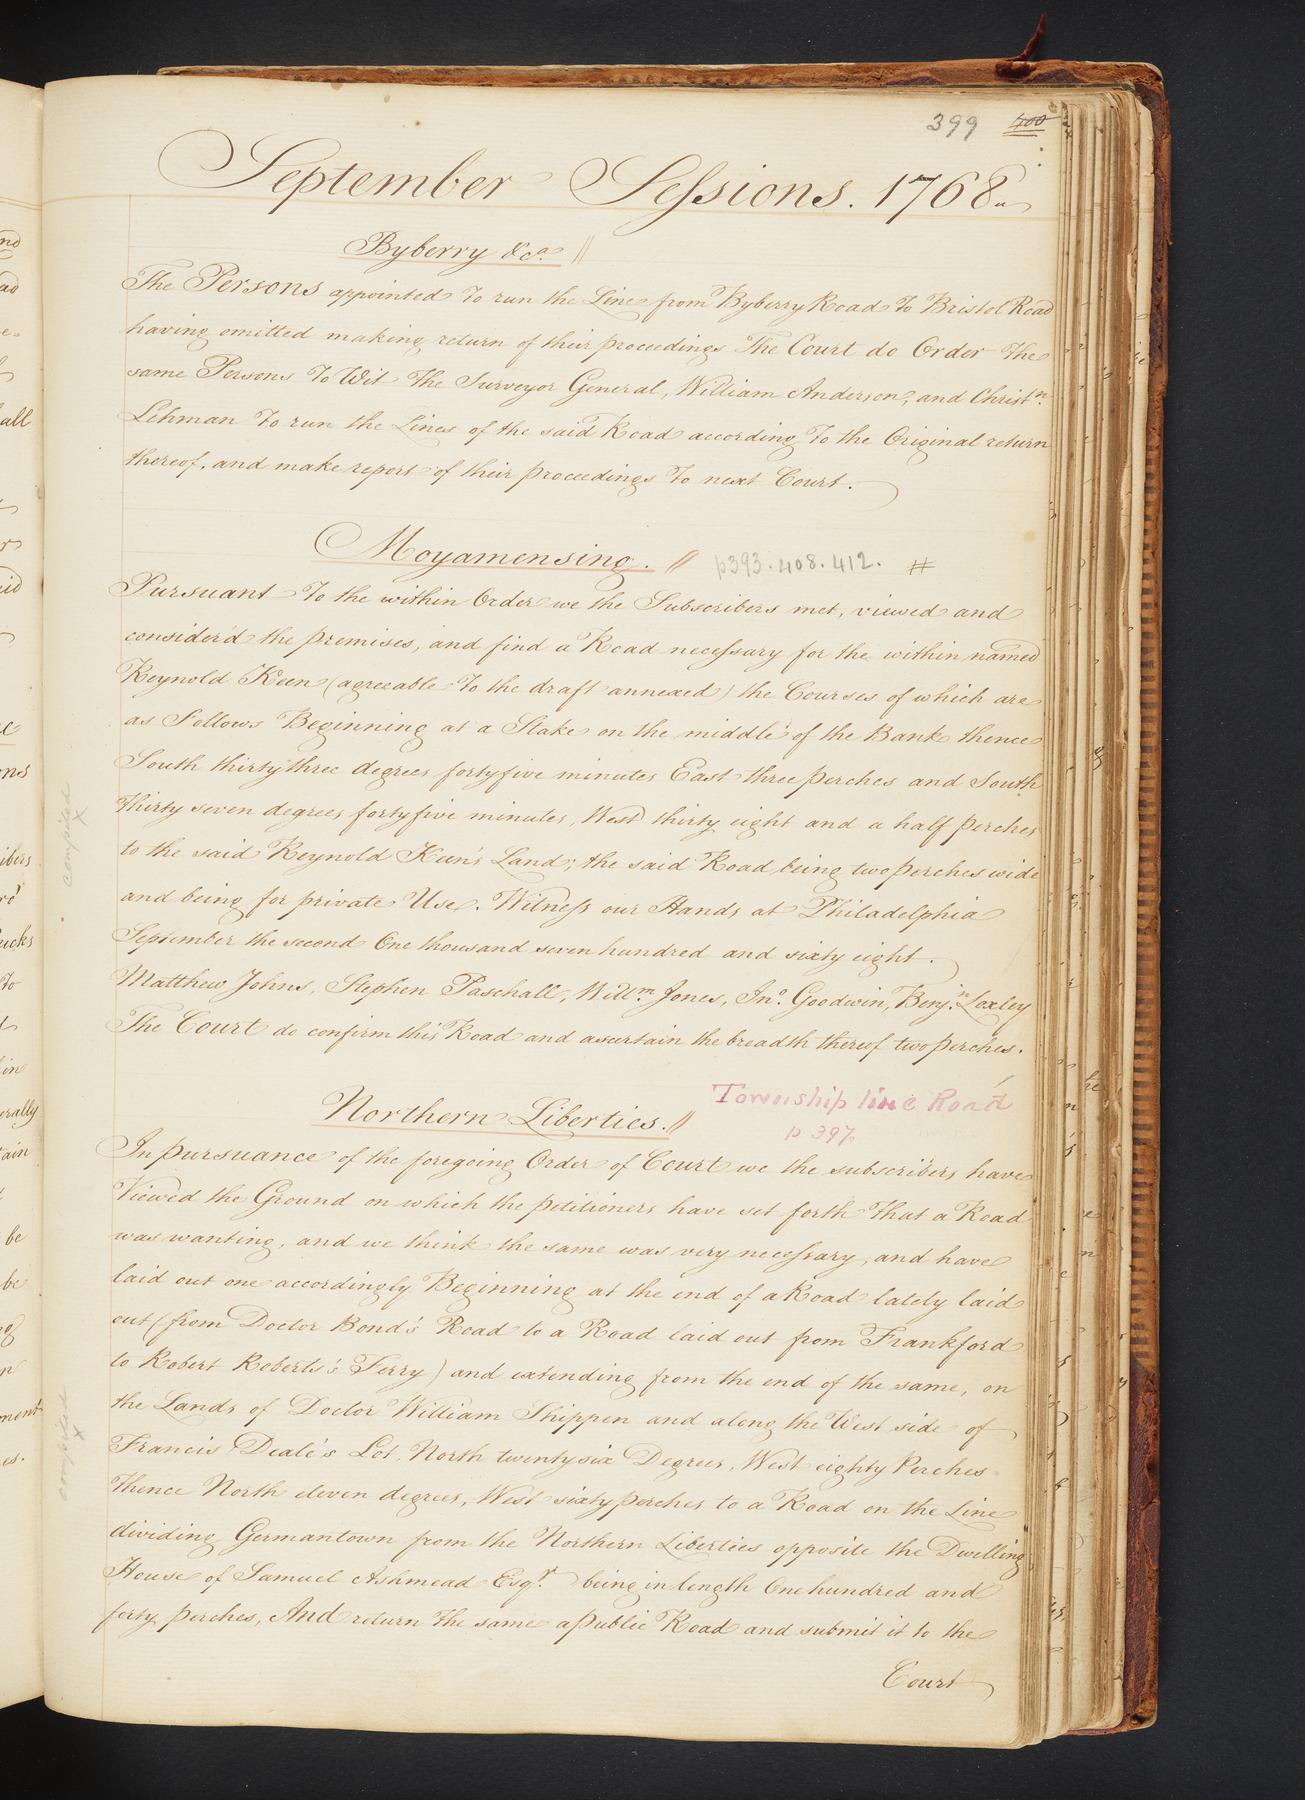 399 400
September Sessions. 1768.
Byberry &ca. //
The Persons appointed To run the Line from Byberry Road To Bristol Road
having omitted making return of their proceedings The Court do Order the
same Persons To Wit The Surveyor General, William Anderson, and Christn.
Lehman To run the Lines of the said Road according To the Original return
thereof, and make report of their proceedings To next Court.
Moyamensing. // p393. 408. 412. #
Pursuant To the within Order we the Subscribers met, viewed and
consider'd the premises, and find a Road necessary for the within named
Reynold Keen (agreeable To the draft annexed) the Courses of which are
as Follows Beginning at a Stake on the middle of the Bank thence
South thirty three degrees forty five minutes East three perches and South
thirty seven degrees forty five minutes, West thirty eight and a half perches
to the said Reynold Keen's Land; the said Road being two perches wide
and being for private Use. Witness our Hands at Philadelphia
September the second One thousand seven hundred and sixty eight.
Matthew Johns, Stephen Paschall, Willm. Jones, Jno. Goodwin, Benjn. Loxley
The Court do confirm this Road and ascertain the breadth thereof two perches.
Northern Liberties. // Township line Road
p 397
In pursuance of the foregoing Order of Court we the subscribers have
Viewed the Ground on which the petitioners have set forth That a Road
was wanting, and we think the same was very necessary, and have
laid out one accordingly Beginning at the end of a Road lately laid
out (from Doctor Bond's Road to a Road laid out from Frankford
to Robert Roberts's Ferry) and extending from the end of the same, on
the Lands of Doctor William Shippen and along the West side of
Francis Deale's Lot, North twenty six Degrees, West eighty Perches
thence North eleven degrees, West sixty perches to a Road on the Line
dividing Germantown from the Northern Liberties opposite the Dwelling
House of Samuel Ashmead Esqr. being in length One hundred and
forty perches, And return the same a public Road and submit it to the
Court